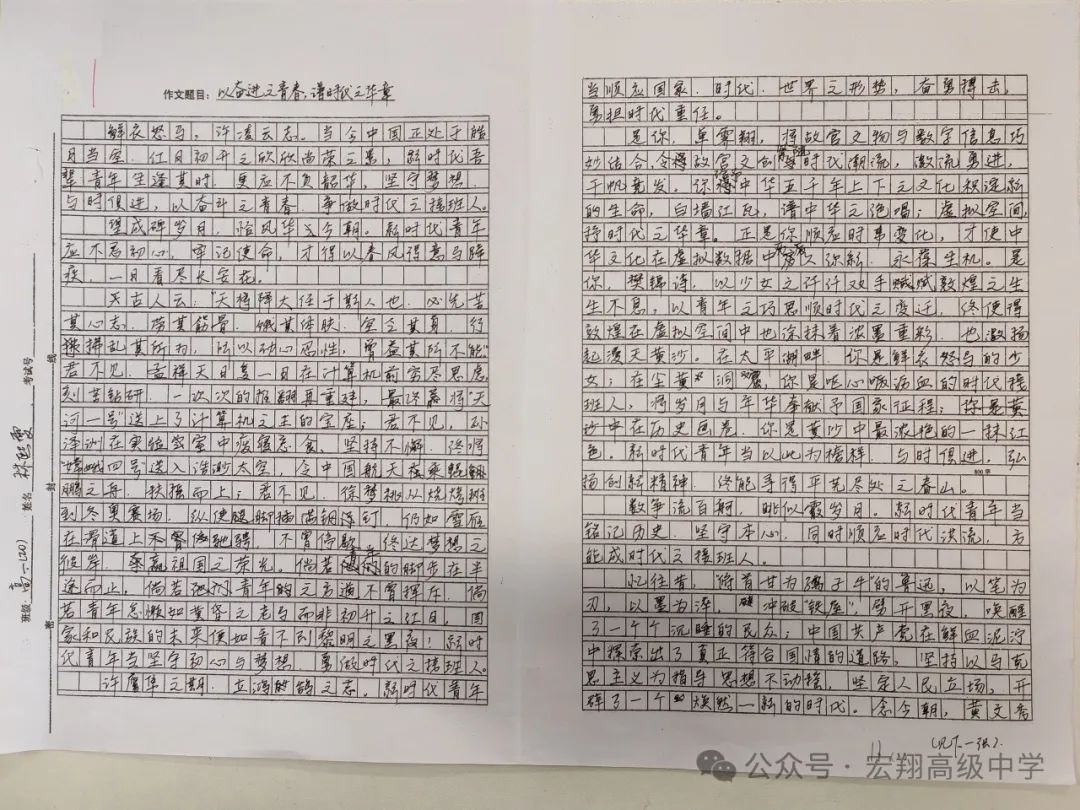 作文题目：以奋进之青春，谱时代之华章
鲜衣怒马，许凌云志。当今中国正处于皓
月当空、红日初升之欣欣尚荣之景，新时代吾
辈青年生逢其时，更应不负韶华，坚守梦想，
与时俱进，以奋斗之青春，争做时代之接班人。
望峥嵘岁月，恰风华义今朝。新时代青年
应不忘初心，牢记使命，才得以春风得意马蹄
疾，一日看尽长安花。
夫古人云："天将降大任于斯人也，必先苦
其心志，劳其筋骨，饿其体肤，空乏其身，行
拂乱其所为，所以动心忍性，曾益其所不能"
君不见，孟祥天日复一日在计算机前穷尽思虑
刻苦钻研，一次次的推翻再重建，最终将"天
河一号"送上了计算机之王的宝座；君不见，孙
泽洲在实验室中废寝忘食，坚持不懈，终将
"嫦娥四号"送入浩渺太空，令中国航天乘鲲
鹏之舟，扶摇而上；君不见，徐梦桃从烧烤班
到冬奥赛场，纵使腿脚插满钢浮钉，仍如雪雁
在赛道上驰骋，不曾停歇，终达梦想之
彼岸，赢祖国之荣光。倘若青年的脚步在半
途而止，倘若青年的之方遒不曾挥斥，倘
若青年怠懒如黄昏之老与而非初升之红日，国
家和民族的未来便如看不到黎明之黑夜！新时
代青年当坚守初心与梦想，勇做时代之接班人。
许鹰隼之期，立鸿鹄之志。新时代青年
班级 高一(20) 姓名 考试号
密 封 线
当顺应国家、时代、世界之形势，奋勇搏击，
勇担时代重任。
是你，单霁翔，将故宫文物与数字信息巧
妙结合，令故宫文创导时代潮流，激流勇进，
千帆竞发。你得中华五千年上下之文化积淀新
的生命，白墙红瓦，谱中华之绝唱；虚拟空间，
抒时代之华章。正是你顺应时事变化，才使中
华文化在虚拟数据中历久弥新，永葆生机。是
你，樊锦诗，以少女之纤纤双手赋敦煌之生
生不息，以青年之巧思顺时代之变迁，终使得
敦煌在虚拟空间中也涂抹着浓墨重彩，也激扬
起漫天黄沙。在太平湖畔，你是鲜衣怒马的少
女；在尘黄洞窟，你是呕心沥血的时代接
班人，将岁月与年华奉献予国家征程；你是黄
沙中在历史画卷，你是黄沙中最浓艳的一抹红
色。新时代青年当以此为榜样，与时俱进，弘
800字
扬创新精神，终能寻得平芜尽处之春山。
数争流百舸，眺似霞岁月。新时代青年当
铭记历史，坚守本心，同时顺应时代洪流，方
能成时代之接班人。
忆往昔，俯首甘为孺子牛"的鲁迅，以笔为
刃，以墨为泽，冲破"铁屋"，劈开黑夜，唤醒
了一个个沉睡的民众；中国共产党在鲜血泥泞
中探索出了真正符合国情的道路，坚持以马克
思主义为指导思想不动摇，坚定人民立场，开
辟了一个焕然一新的时代。念今朝，黄文秀
11
(见下一张).
公众号·宏翔高级中学